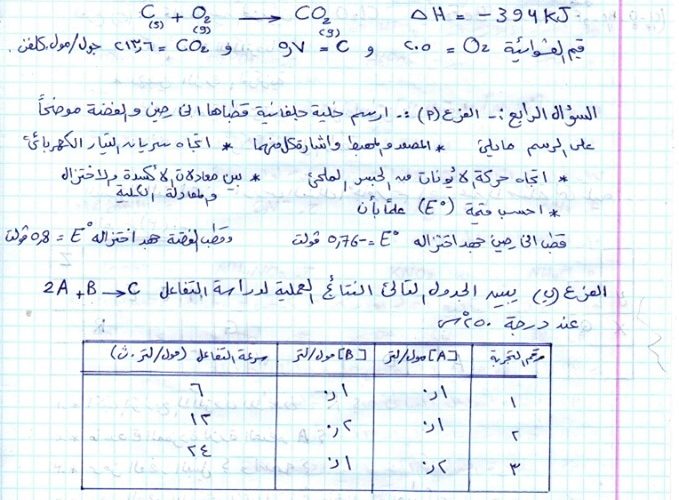 C(s) + O₂(g) ⟶ CO₂(g) ΔH = -394 kJ
قيم العشوائية O₂ = ٢٠٥ و C = ٥,٧ و CO₂ = ٢١٣,٦ جول/مول.كلفن.
السؤال الرابع :- الفرع (P) :- ارسم خلية جلفانية قطباها الخارصين والفضة موضحاً
على الرسم مايلي * المصعد والمهبط واشارة كل منهما * اتجاه سريان التيار الكهربائي
* اتجاه حركة الايونات من الجسر الملحي * بين معادلات الأكسدة والاختزال
والمعادلة الكلية
* احسب قيمة (E°) علماً بأن
قطب الخارصين جهد اختزاله E° = -0,76 فولت وقطب الفضة جهد اختزاله E° = 0,8 فولت
الفرع (ب) يبين الجدول التالي النتائج العملية لدراسة التفاعل 2A + B → C
عند درجة ٢٥٠ س
رقم التجربة [A] مول/لتر [B] مول/لتر سرعة التفاعل (مول/لتر.ث)
١ ٠,١ ٠,١ ٦
٢ ٠,١ ٠,٢ ١٢
٣ ٠,٢ ٠,١ ٢٤